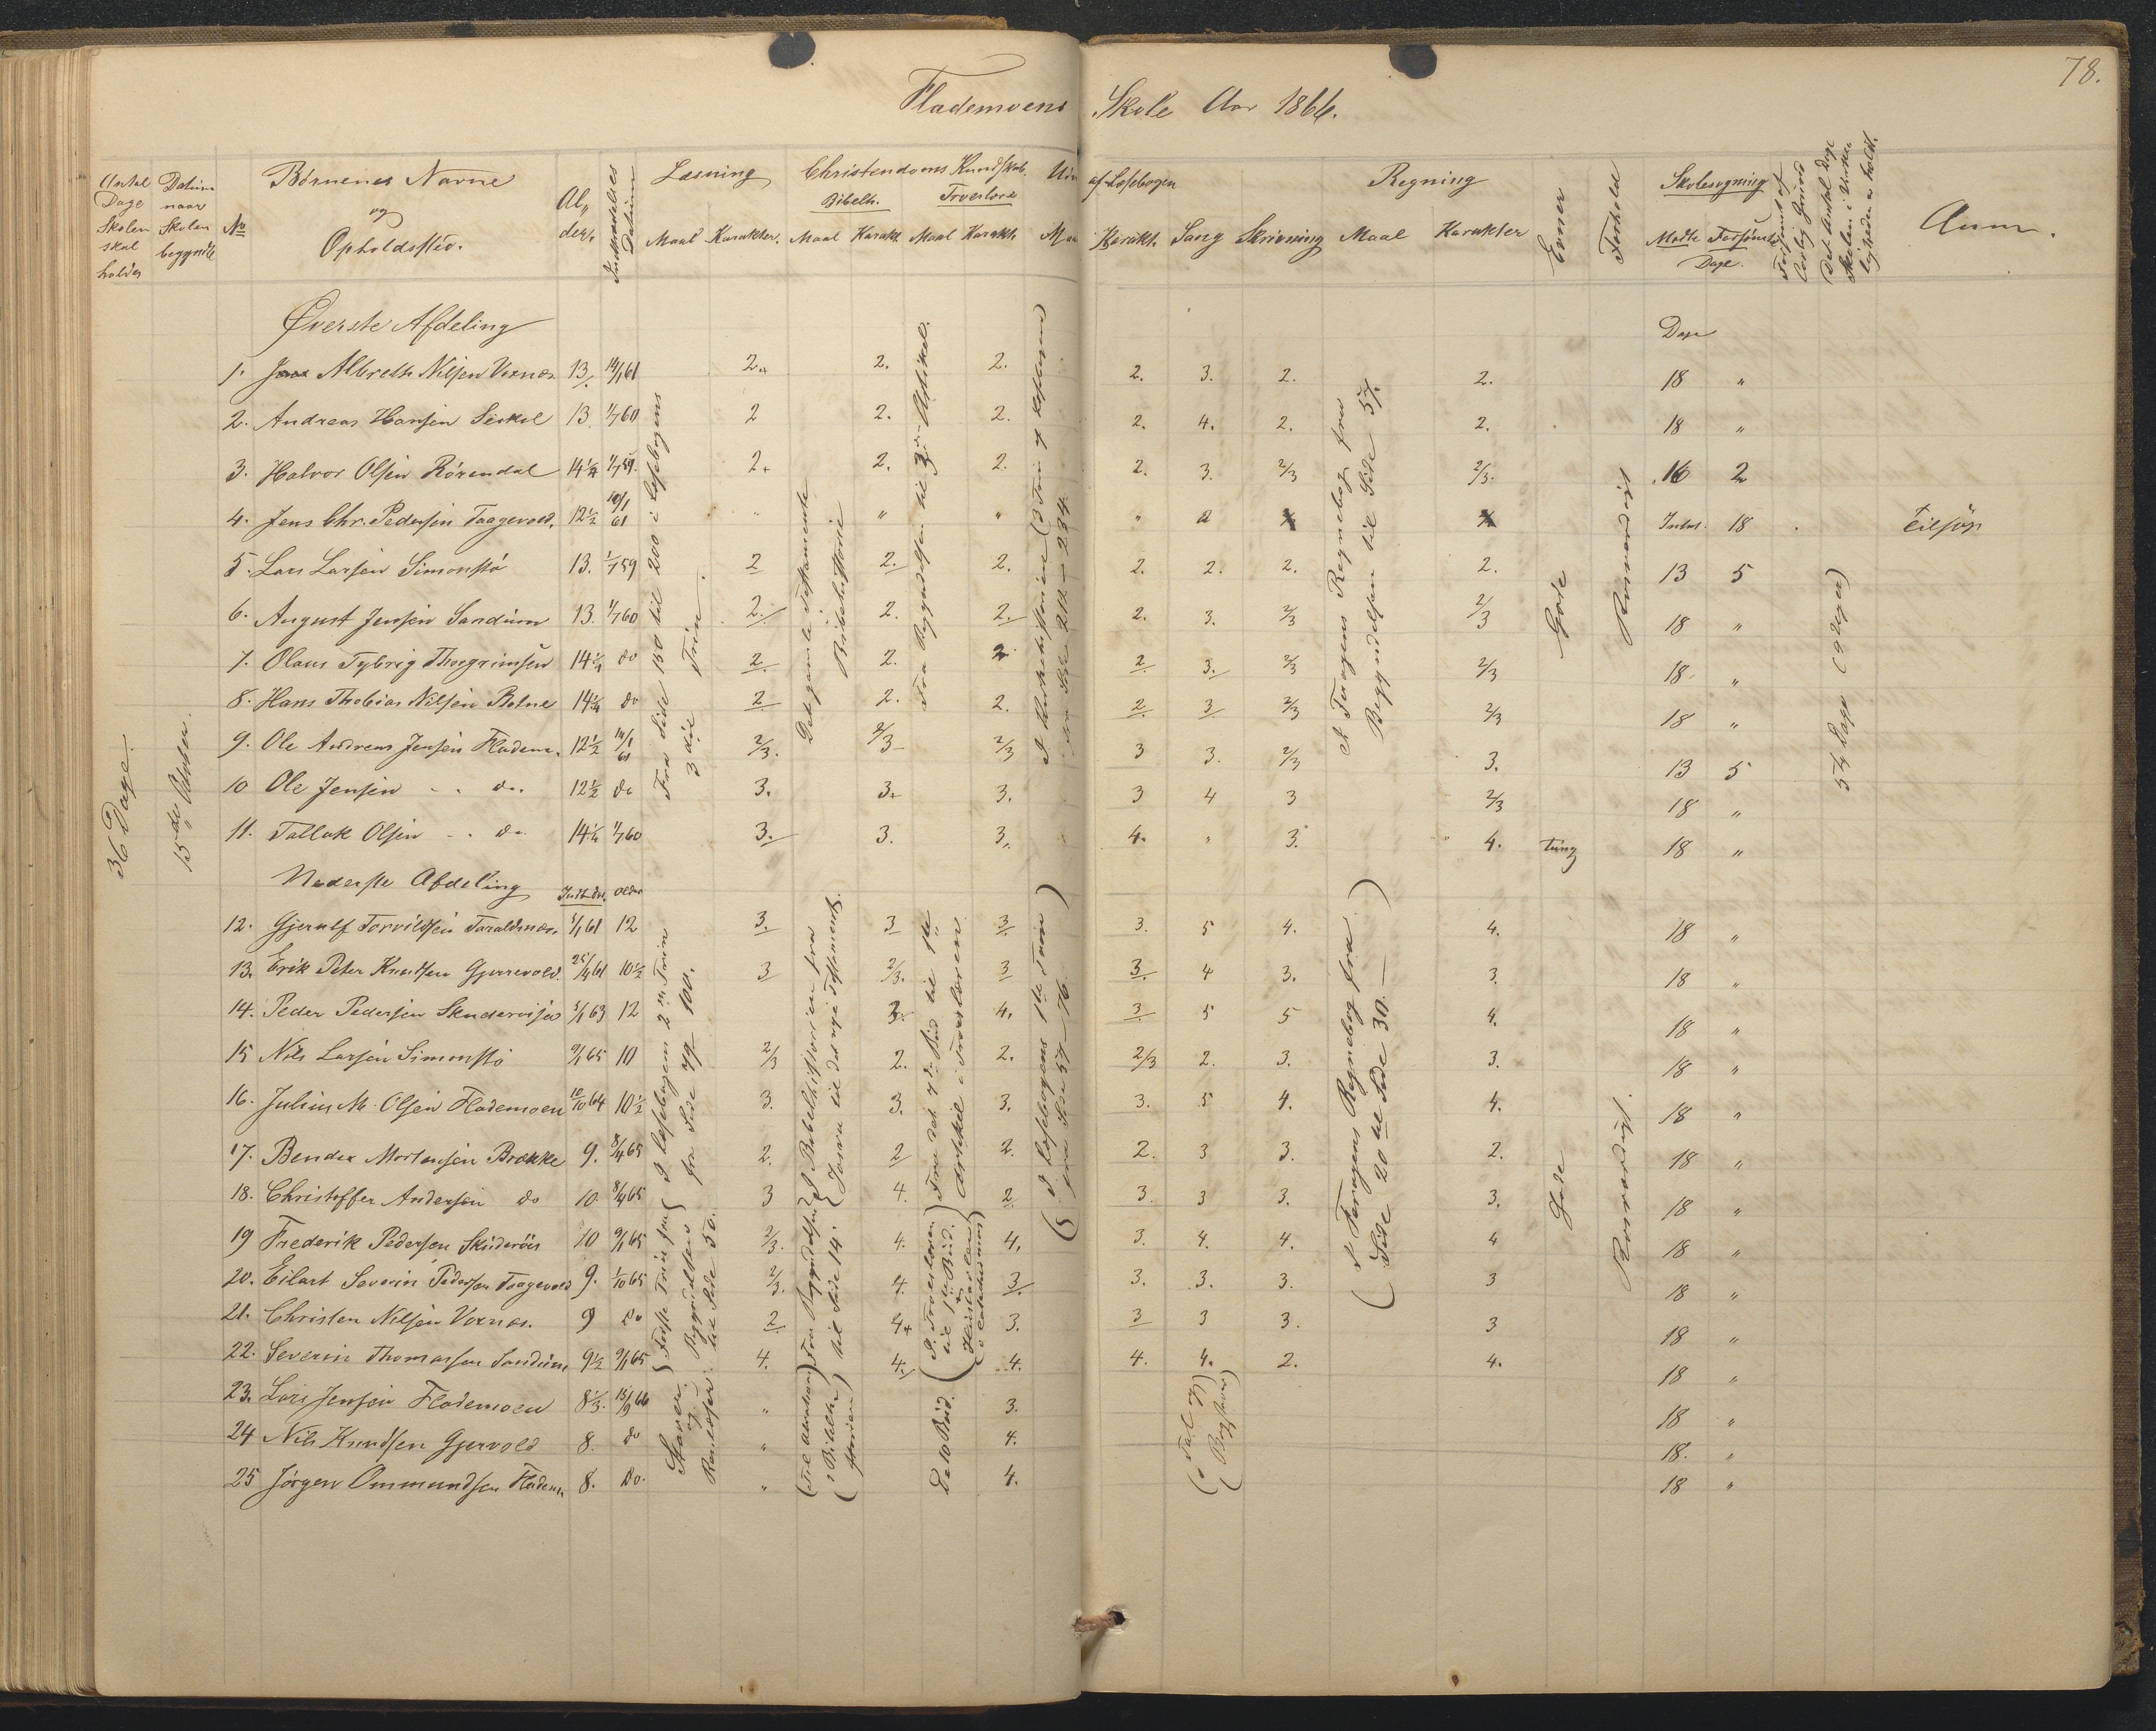 78.
Flademoens Skole Aar 1866.
Antal Dage Skolen skal holdes
Datum naar Skolen begyndte
No
Børnenes Navne og Opholdssted.
Al„ der.
Indmeldelses Datum
Læsning
Maal Karakter.
Christendoms Kundskab.
Bibelh. Troeslære
Maal Karakt. Maal Karakt.
af Læsebogen
Karakt. Sang Skrivning
Regning
Maal Karakter
Evner
Forhold
Skolesøgning
Mødte Forsømte
Dage.
Det Antal Dage Skolen i Virkeligheden er holdt.
Anm.
36 Dage.
15de October.
Øverste Afdeling
Dage
1. Albreth Nilsen Voxnæs 13 14/1 61 2. 2. 2. 2. 3. 2. 2. 18 „
2. Andreas Hansen 13. 1/7 60 2 2. 2. 2. 4. 2. 2. 18 „
3. Halvor Olsen Rørendal 14 1/2 1/7 59. 2. 2. 2. 2. 3. 2/3 2/3. 16 2
4. Jens Chr. Pedersen Taagevold. 12 1/2 10/1 61 „ „ „ „ 18 tilsøs
5. Lars Larsen Simonstø 13. 1/7 59 2 2. 2. 2. 2. 2. 2. 13 5
6. August Jensen Sandum 13. 1/7 60 2. 2. 2. 2. 3. 2/3 2/3 18 „
7. Olaus Tybring Thorgrimsen 14 1/4 do 2. 2. 2 2. 3. 2/3 2/3 18. „
8. Hans Thobias Nilsen Botne 14 1/4 do 2 2. 2. 2. 3 2/3 2/3 18 „
9. Ole Andreas Jensen Fladem. 12 1/2 14/1 61 2/3. 2/3 2/3 3 3. 2/3 3. 13 5
10 Ole Jensen do. 12 1/2 do 3. 3. 3. 3 4 3 2/3 18 „
11. Tallak Olsen do 14 1/4 1/7 60 3. 3. 3. 4. „ 3. 4. tung 18 „
Fra Side 150 til 200 i Læsebogens 3die Trin.
Det gamle Testamente Bibelhistorie
Fra Begyndelsen til 3die Artikel.
I Kirkehistorien (3 Trin af Læsebogen fra Side 212 – 234.
I Færagens Regnebog fra Begyndelsen til Side 57.
Gode
54 Dage (9 Uger)
Nederste Afdeling
12. Gjerulf Torvildsen Taraldsnæs. 5/1 61 12 3. 3 3 3. 5 4. 4. 18 „
13. Erik Peter Knudsen Gjerrevold. 25/4 61 10 1/2 3 2/3. 3 3. 4 3. 3. 18 „
14. Peder Pedersen 5/1 63 12 3. 4. 3 5 5 4. 18 „
15 Nils Larsen Simonstø 9/1 65 10 2/3 2. 2. 2/3 2. 3. 3. 18 „
16. Julius M. Olsen Flademoen 10/10 64 10 1/2 3. 3. 3. 3. 5 4. 4. 18 „
17. Bendix Mortensen Brække 9. 8/4 65 2. 2 2. 2. 3 3. 2. 18 „
18. Christoffer Andersen do 10. 8/4 65 3 4. 2 3. 3 3. 3. 18 „
19 Frederik Pedersen 10 9/1 65 2/3. 4. 4. 3. 4. 4. 4 18 „
20. Eilart Severin Pedersen Taagevold 9. 1/10 65 2/3. 4. 3. 3. 3. 3. 3 18 „
21. Christen Nilsen Voxnæs. 9 do 2. 4. 3. 3 3 3. 3 18 „
22. Severin Thomassen Sandum 9 1/2 9/1 65 4. 4. 4. 4. 4. 2. 4. 18 „
23. Lars Jensen Flademoen 8 1/3. 15/9 66 „ 3. 18 „
24 Nils Knudsen Gjervold 8. do „ 4. 18. „
25 Jørgen Ommundsen Fladem. 8. do. „ 4. 18 „
I Læsebogens 2det Trin fra Side 79 – 100.
Første Trin fra Begyndelsen til Side 50.
Staver og
I Bibelhistorien fra Josva til det nye Testamente.
Fra Begyndelsen til Side 14.
(Til Abraham i Bibelhistorien)
Fra det 4de Bud til 1ste Artikel i Troeslæren
I Troeslæren til 1ste Bud.
De 10 Bud.
I Læsebogens 1ste Trin fra Side 57 – 76.
(Tal og Bogstaver)
I Færagens Regnebog fra (Side 20 til Side 30.–
Gode